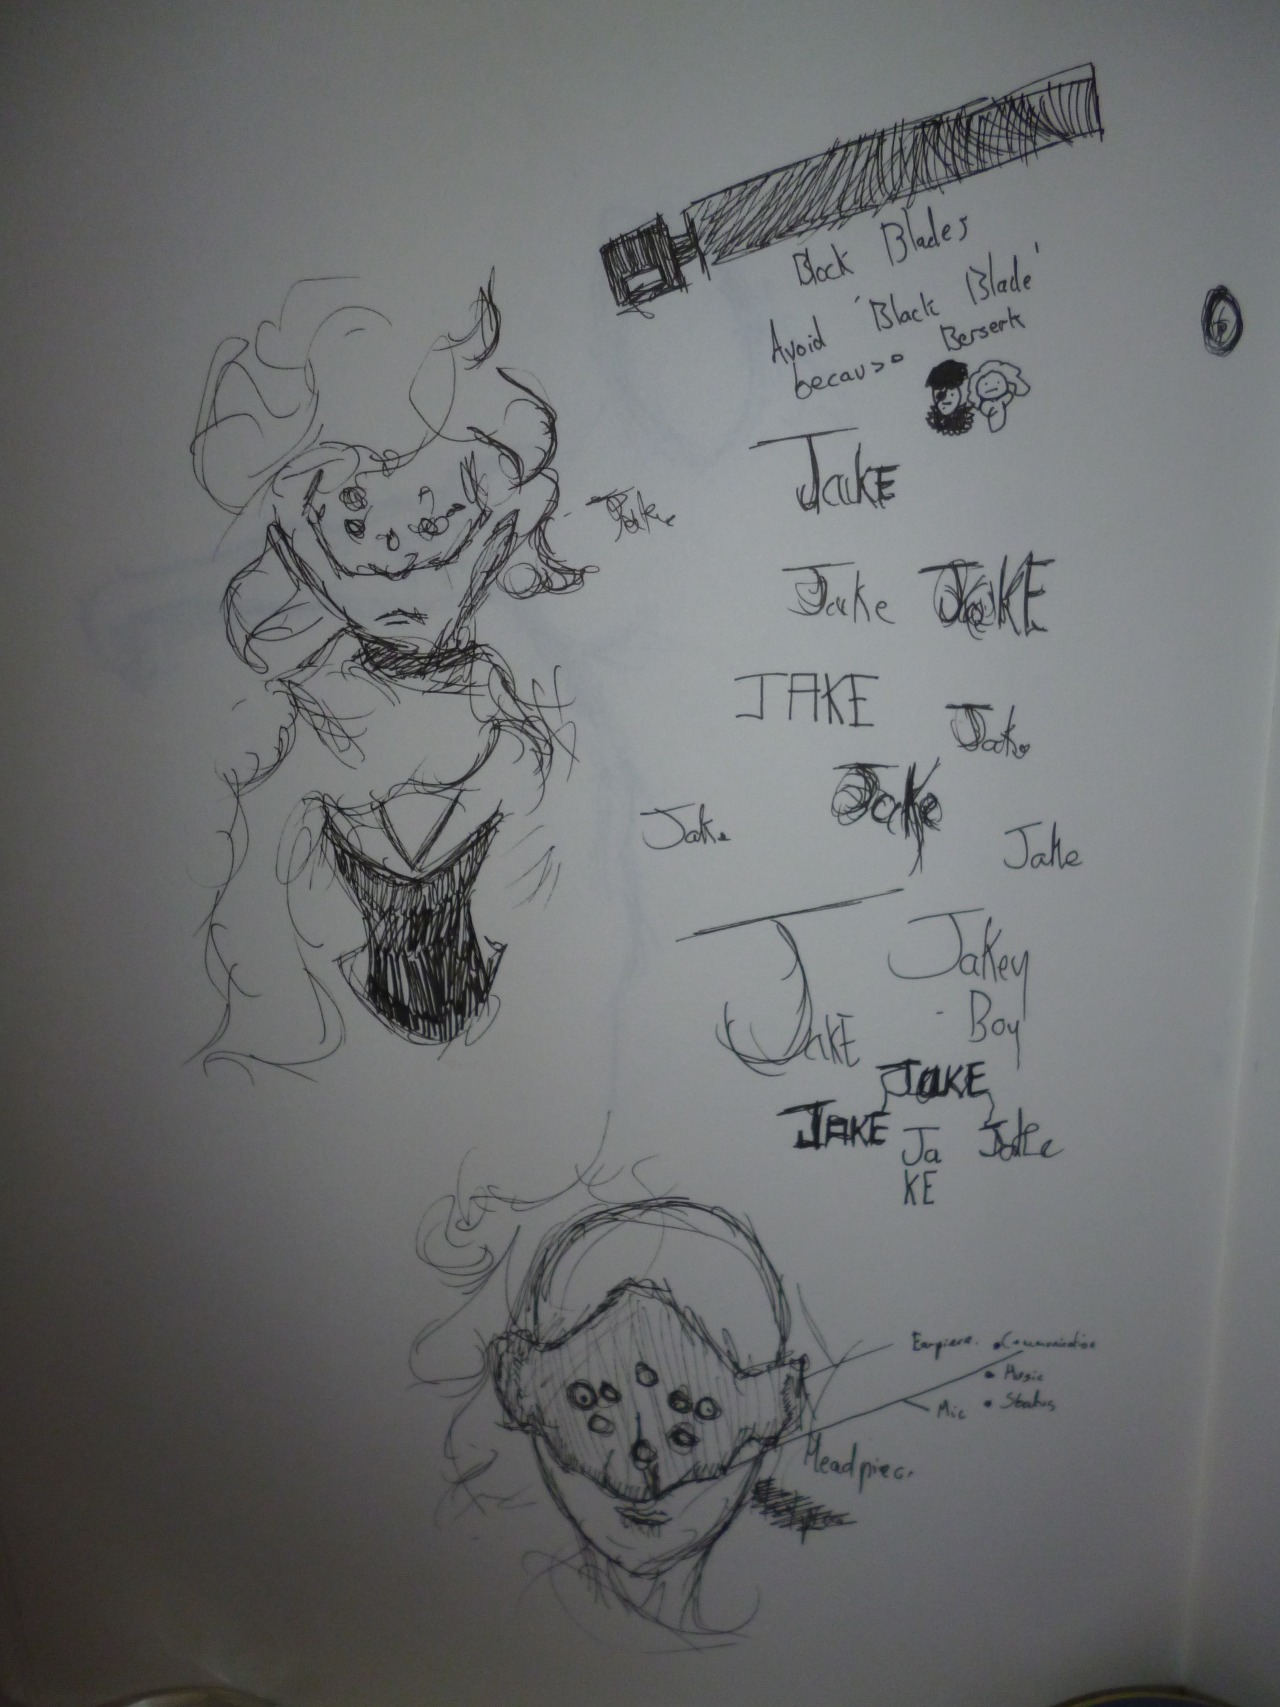 Block Blades
Avoid 'Black Blade'
because Berserk
JakE
Jake
Jake JAKE
JAKE
Jake
Jake
Jake
Jake
JakE
Jakey
Boy
JAKE
JAKE
Ja
KE
Jake
Earpiece. • Communication
• Music
Mic • Status
Headpiece